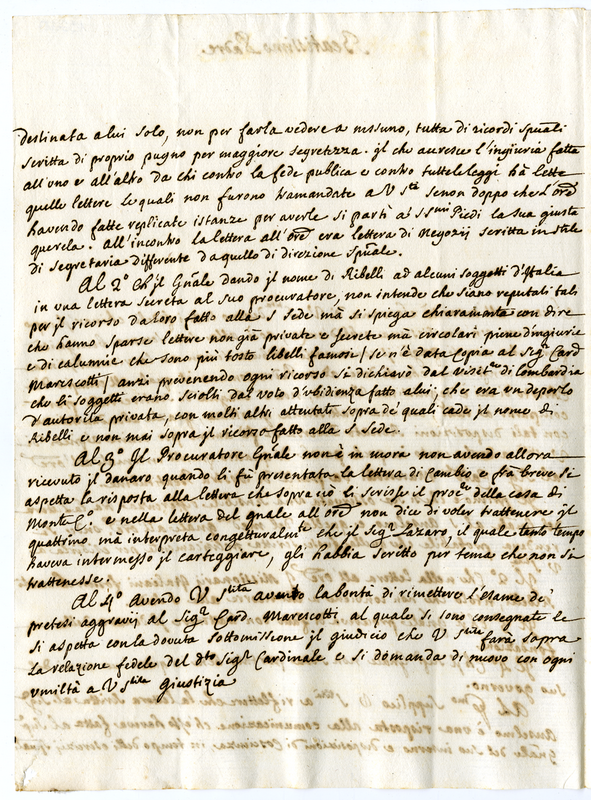 destinata a lui solo, non per farla vedere a nissuno, tutta di ricordi spũali
scritta di proprio pugno per maggiore segretezza. Jl che accresce l'ingiuria fatta
all'uno e all'altro da chi contro la fede publica e contro tutte le leggi hà lette
quelle lettere le quali non furono tramandate a V Stà senon doppo che l'Orẽ
havendo fatte replicate istanze per averle si partì a' SSmi Piedi la sua giusta
querela. All'incontro la lettera all'Orẽ era lettera di Negozij scritta in stile
di segretaria differente da quello di direzione spũale.
Al 2º Ch'jl Gñale dando jl nome di Ribelli ad alcuni soggetti d'Italia
in una lettera secreta al suo procuratore, non intende che siano reputati tali
per jl ricorso da loro fatto alla S Sede mà si spiega chiaramente con dire
che hanno sparse lettere non già private e secrete mà circolari piene d'ingiurie
e di calunnie che sono più tosto libelli famosi / se n'è data Copia al Sigr Card
Marescotti / anzi prevenendo ogni ricorso si dichiarò dal Visitre di Lombardia
che li soggetti erano sciolti dal voto d'ubidienza fatto a lui, che era un deporlo
d'autorità privata, con molti altri attentati sopra de' quali cade jl nome di
Ribelli e non mai sopra jl ricorso fatto alla S Sede.
Al 3º Jl Procuratore Gñale non è in mora non avendo allora
ricevuto jl danaro quando li fù presentata la lettera di Cambio e frà breve si
aspetta la risposta alla lettera che sopra ciò li scrisse jl procre della casa di
Monte Cº. e nella lettera del gñale all'Orẽ non dice di voler trattenere jl
quattrino mà interpreta congetturalmte che jl Sigr Lazaro, il quale tanto tempo
haveva intermesso jl carteggiare, gli habbia scritto per tema che non si
trattenesse.
Al 4º Avendo V Stità avuto la bontà di rimettere l'esame de'
pretesi aggravij al Sigr Card. Marescotti, al quale si sono consegnate le
si aspetta con la dovuta sottomissione jl giudicio che V Stità farà sopra
la relazione fedele del dto Sigr Cardinale e si domanda di nuovo con ogni
umiltà a V Stità Giustizia